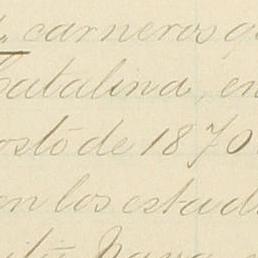 carneros
Catalina, en
osto de 1870
en los estad